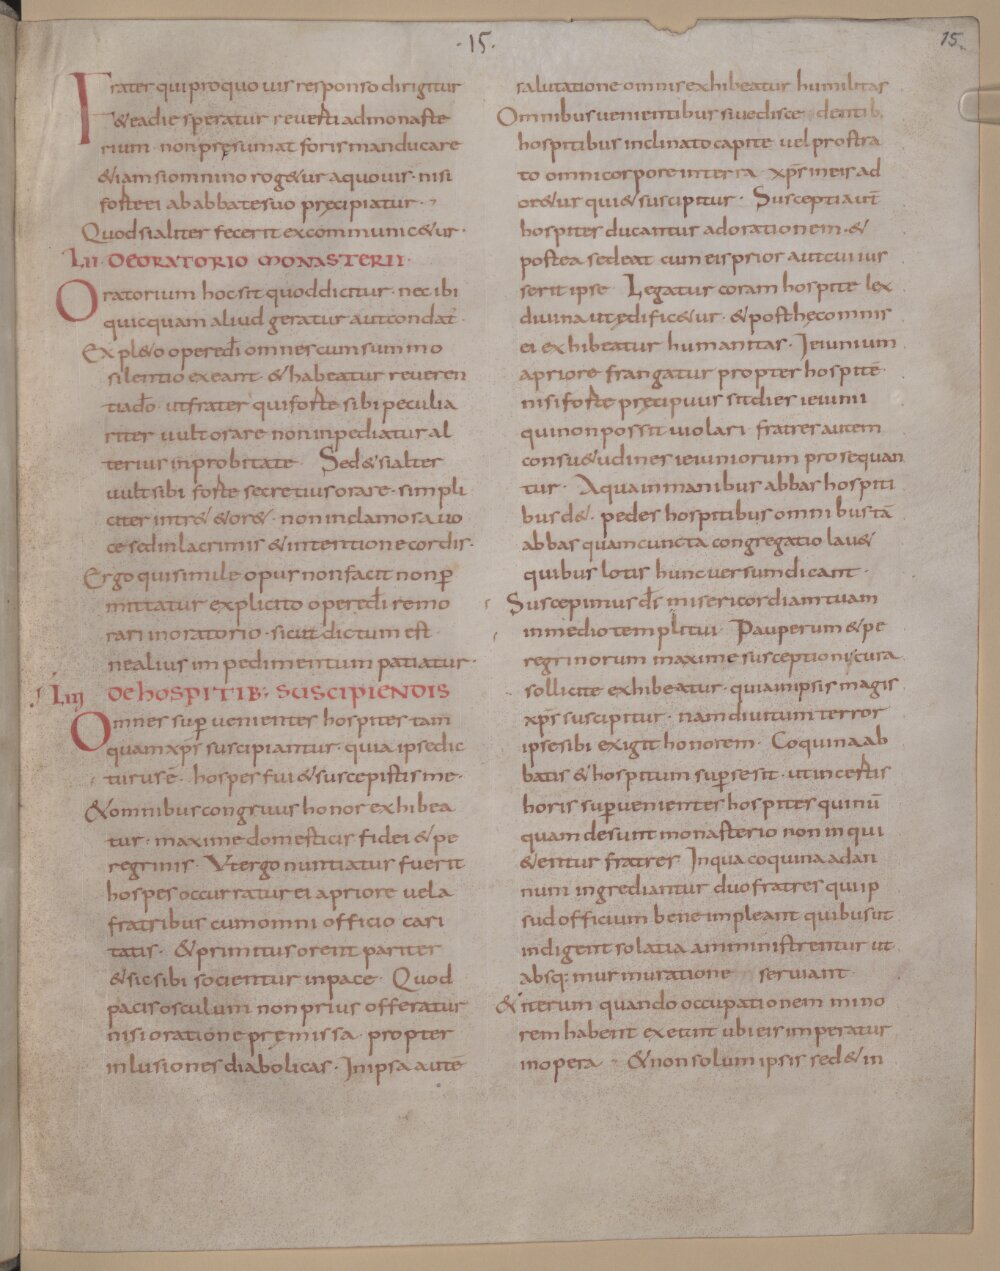 ·15·
15.
Frater qui pro quo uis responso dirigitur
& ea die speratur reuerti ad monaste
rium · non pręsumat foris manducare
&iam si omnino rog&ur a quouis · nisi
forte ei ab abbate suo pręcipiatur ·
Quod si aliter fecerit excommunic&ur ·
LII · DE ORATORIO MONASTERII ·
Oratorium hoc sit quod dicitur · nec ibi
quicquam aliud geratur aut condat̄ ·
Expl&o opere dī omnes cum summo
silentio exeant · & habeatur reueren
tia dō · ut frater qui forte sibi peculia
riter uult orare non inpediatur al
terius inprobitate · Sed & si aliter
uult sibi forte secretius orare · simpli
citer intr& & or& · non in clamosa uo
ce sed in lacrimis & intentione cordis ·
Ergo qui simile opus non facit non ꝑ
mittatur explicito opere dī remo
rari in oratorio · sicut dictum est
ne alius impedimentum patiatur ·
LIII DE HOSPITIB; SUSCIPIENDIS
Omnes suꝑuenientes hospites tam
quam xp̄s suscipiantur · quia ipse dic
turus ē · hospes fui & suscepistis me ·
& omnibus congruus honor exhibea
tur · maxime domesticis fidei & pe
regrinis · Vt ergo nuntiatus fuerit
hospes occurratur ei a priore uel a
fratribus cum omni officio cari
tatis · & primitus orent pariter
& sic sibi socientur in pace · Quod
pacis osculum non prius offeratur
nisi oratione pręmissa · propter
inlusiones diabolicas · In ipsa autē
salutatione omnis exhibeatur humilitas
Omnibus uenientibus siue disce dentib;
hospitibus inclinato capite uel prostra
to omni corpore in terra · xp̄s in eis ad
or&ur qui & suscipitur · Suscepti aut̄
hospites ducantur ad orationem · &
postea sedeat cum eis prior aut cui ius
serit ipse · Legatur coram hospite lex
diuina ut ędific&ur · & post hęc omnis
ei exhibeatur humanitas · Ieiunium
a priore frangatur propter hospitē
nisi forte pręcipuus sit dies ieiunii
qui non possit uiolari · fratres autem
consu&udines ieiuniorum prosequan
tur · Aqua in manibus abbas hospiti
bus d& · pedes hospitibus omnibus tā
abbas quam cuncta congregatio lau&
quibus lotis hunc uersum dicant ·
Suscepimus dś misericordiam tuam
in medio templi tui · Pauperum & pe
regrinorum maxime susceptioni cura
sollicite exhibeatur · quia in ipsis magis
xp̄s suscipitur · nam diuitum terror
ipse sibi exigit honorem · Coquina ab
batis & hospitum suꝑ se sit · ut incertis
horis suꝑuenientes hospites qui nū
quam desunt monasterio non inqui
&entur fratres In qua coquina ad an
num ingrediantur duo fratres qui ip
sud officium bene impleant quibus ut
indigent solatia amministrentur ut
absq; murmuratione seruiant
& iterum quando occupationem mino
rem habent exeunt ubi eis imperatur
in opera · & non solum ipsis sed & in